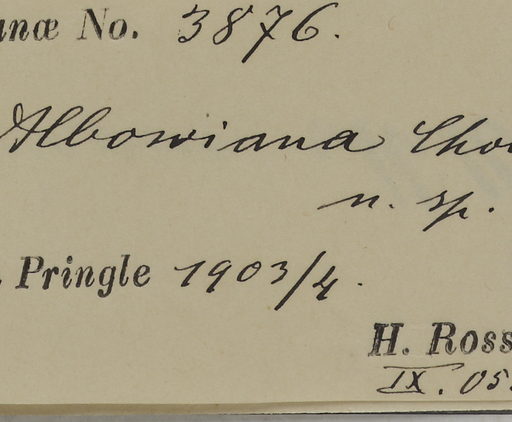 anæ No. 3876.
Albowiana Cho
n. sp.
. Pringle 1903/4.
H. Ross
IX. 05.